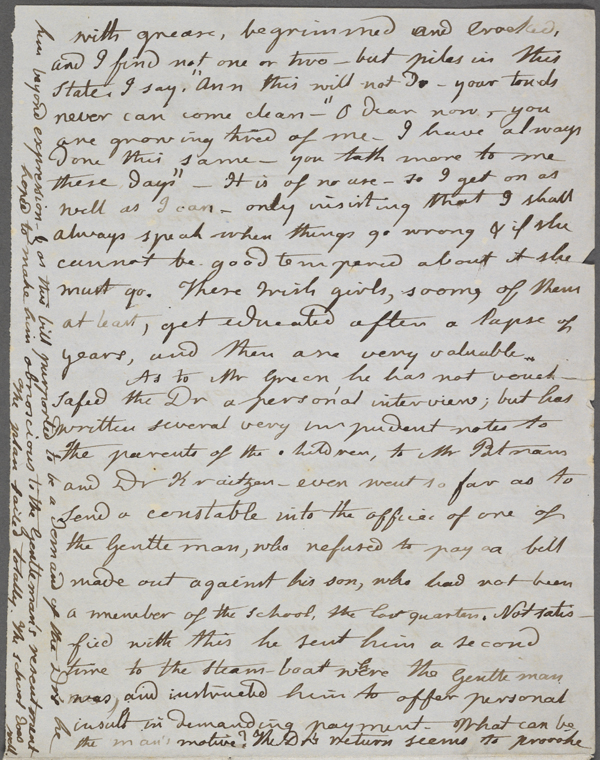 with grease, begrimmed and crooked,
and I find not one or two - but piles in this
state. I say. "Ann this will not Do - your touds
never can come clean -" O dear now, - you
are growing tired of me - I have always
Done this same - you talk more to me
these days" - It is of no use - so I get on as
well as I can - only insisting that I shall
always speak when things go wrong & if she
cannot be good temperid about it she
must go. These Irish girls, soomg of them
at least, get educated after a lapse of
years, and then are very valuable.
As to Mr Green he has not vouch-
safed the Dr a personal interview; but has
written several very impudent notes to
the parents of the children, to Mr Putnam
and Dr Kraitzer - even went so far as to
send a constable into the office of one of
the Gentleman, who refused to pay a bill
made out against his son, who had not been
a member of the school, the last quarter. Not satis-
fied with this he sent him a second
time to the Steam-boat were the Gentleman
was, and instructed him to offer personal
insult in demanding payment - What can be
the man's motive? The Dr's return seems to provoke
him beyond expression - & as this bill purported to be a Demand of the Dr's he
hoped to make him obnoxious to the Gentleman's resentment
The plan failed totally. The school does
well